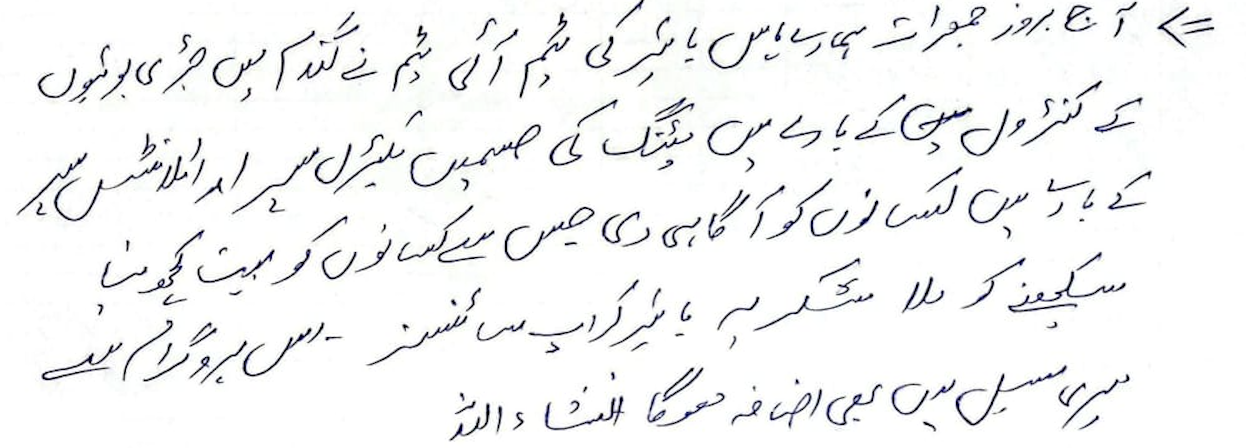 => آج بروز جمعرات ہمارے پاس بائیر کی ٹیم آئی ٹیم نے گندم میں جڑی بوٹیوں
کے کنٹرول کے بارے میں میٹنگ کی جسمیں سپر اور اٹلانٹس سپر
کے بارے میں کسانوں کو آگاہی دی جس سے کسانوں کو بہت کچھ نیا
سیکھنے کو ملا شکریہ بائیر کراپ سائنسز - اس پروگرام سے
میری سیل میں بھی اضافہ ہوگا انشاءاللہ